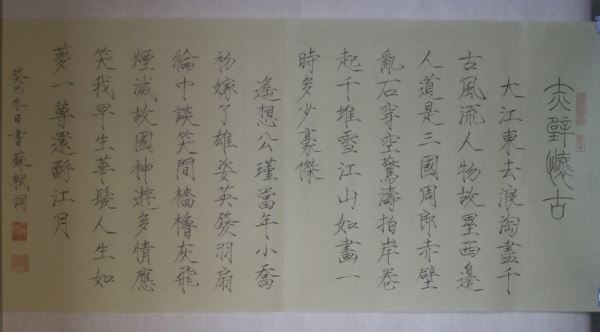 赤壁懷古
大江東去浪淘盡千
古風流人物故壘西邊
人道是三國周郎赤壁
亂石穿空驚濤拍岸卷
起千堆雪江山如畫一
時多少豪傑
遙想公瑾當年小喬
初嫁了雄姿英發羽扇
綸巾談笑間檣櫓灰飛
煙滅故國神遊多情應
笑我早生華髮人生如
夢一尊還酹江月
癸巳冬日書蘇軾詞